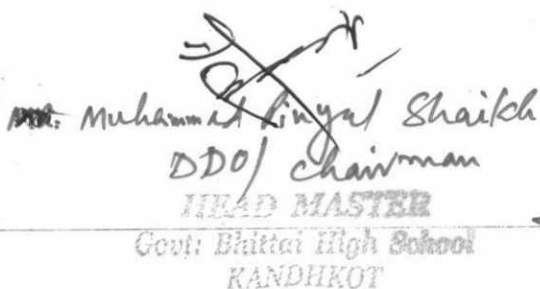 Mr. Muhammad Pinyal Shaikh
DDO/ Chairman
HEAD MASTER
Govt: Bhittai High School
KANDHKOT